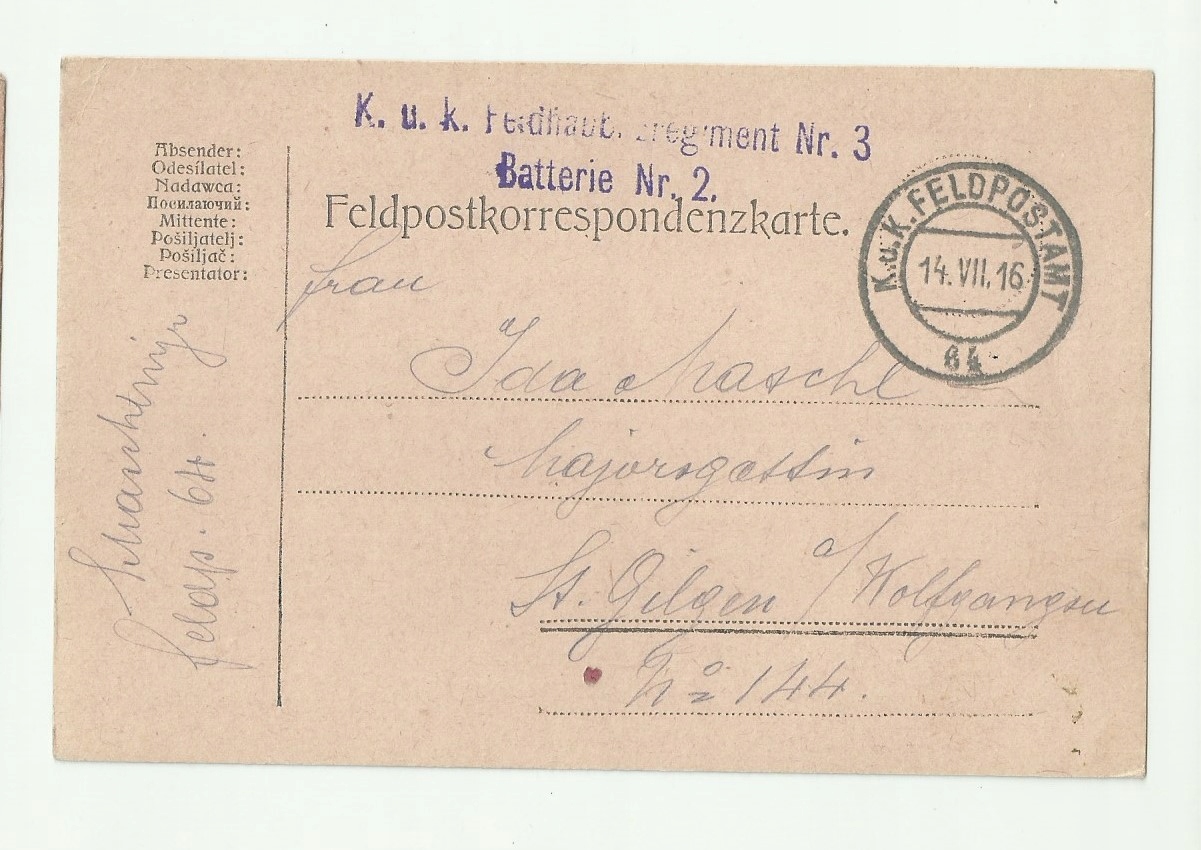 K. u. k. Feldhaub. zregiment Nr. 3
Batterie Nr. 2.
Absender:
Odesílatel:
Nadawca:
Посилаючий:
Mittente:
Pošiljatelj:
Pošiljač:
Presentator:
Feldpostkorrespondenzkarte.
K.u.K. FELDPOSTAMT
14. VII. 16
64
Frau
Ida Maschl
Majorsgattin
St. Gilgen a/ Wolfgangsee
No 144.
Feldp. 64.